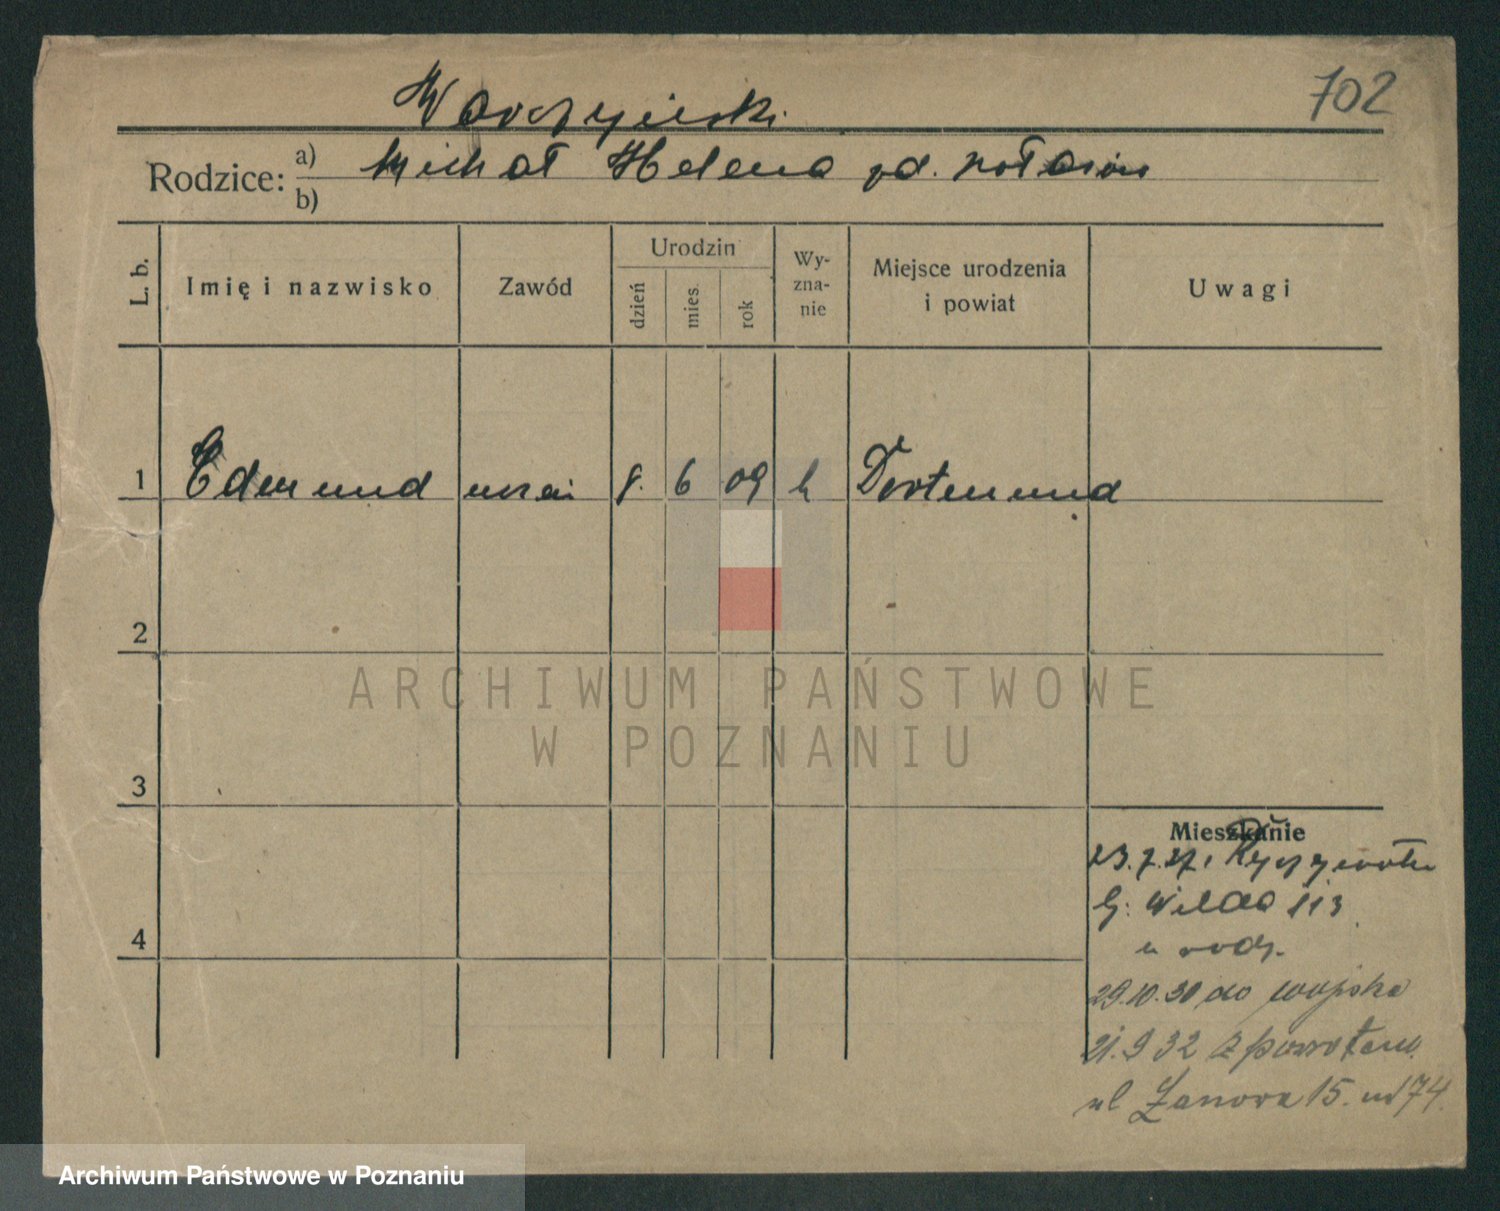 702
Warszyński
Rodzice: a) Michał Helena zd.
b)
L. b.
Imię i nazwisko
Zawód
Urodzin
dzień
mies.
rok
Wy-
zna-
nie
Miejsce urodzenia
i powiat
Uwagi
1 Edmund 8. 6 09 k Dortmund
2
3
4
Mieszkanie
23.7.27.
G: Wilda 113
u rodz.
29.10.30 do wojska
21.9 32 z powrotem
ul 15. m 74.
ARCHIWUM PAŃSTWOWE
W POZNANIU
Archiwum Państwowe w Poznaniu